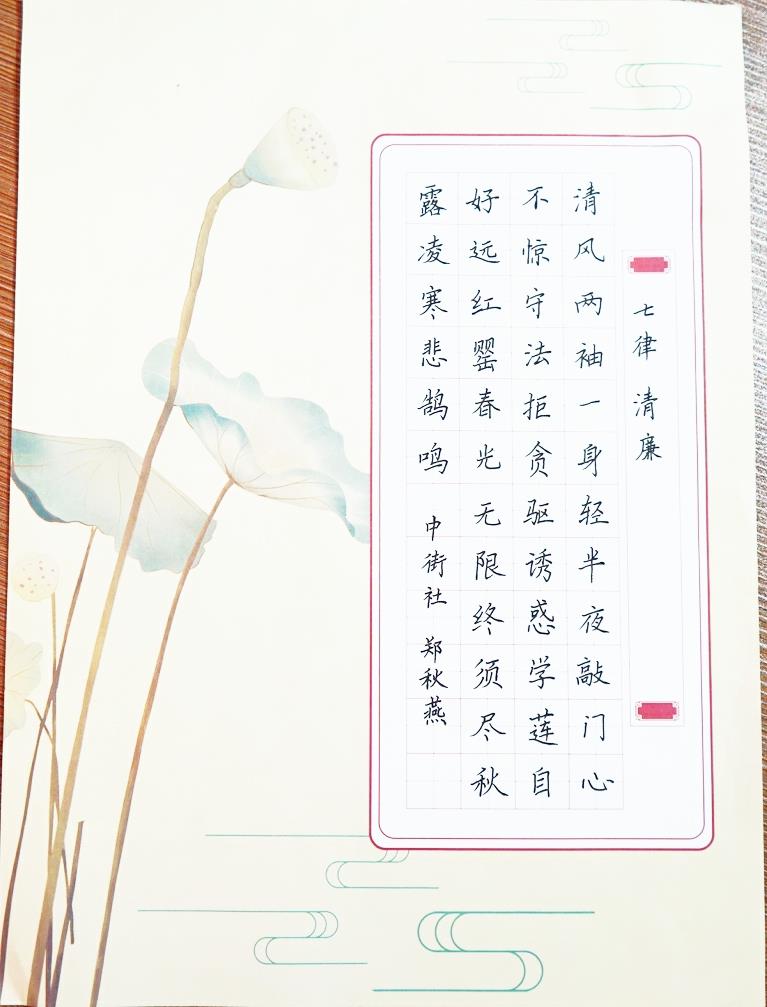 七律 清廉
清风两袖一身轻半夜敲门心
不惊守法拒贪驱诱惑学莲自
好远红罂春光无限终须尽秋
露凌寒悲鹄鸣
中街社 郑秋燕